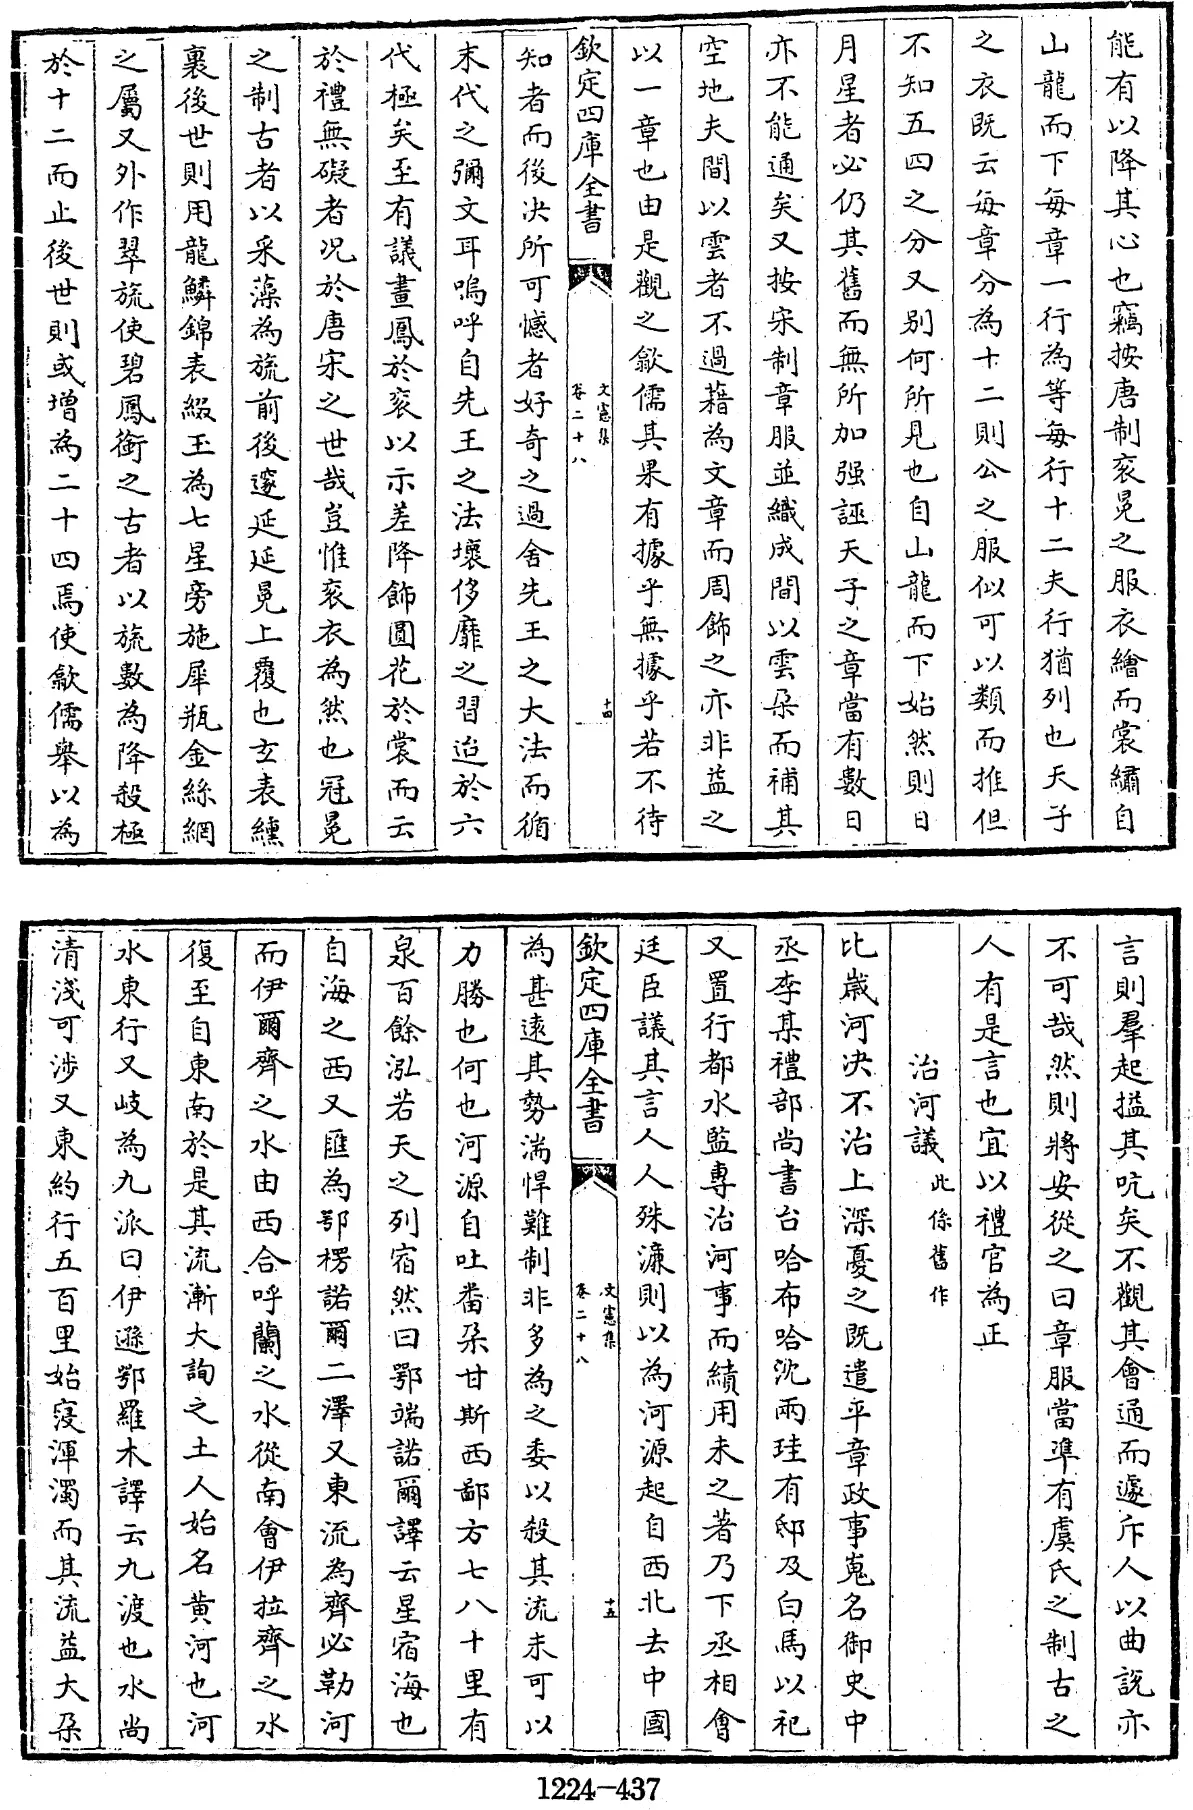 能有以降其心也竊按唐制衮冕之服衣繪而裳繡自
山龍而下每章一行為等每行十二夫行猶列也天子
之衣既云每章分為十二則公之服似可以類而推但
不知五四之分又别何所見也自山龍而下始然則日
月星者必仍其舊而無所加强誣天子之章當有數日
亦不能通矣又按宋制章服並織成間以雲朵而補其
空地夫間以雲者不過藉為文章而周飾之亦非益之
以一章也由是觀之歙儒其果有據乎無據乎若不待
欽定四庫全書
文憲集
卷二十八
十四
知者而後决所可憾者好奇之過舍先王之大法而循
末代之彌文耳嗚呼自先王之法壞侈靡之習迨於六
代極矣至有議畫鳳於衮以示差降飾圓花於裳而云
於禮無礙者况於唐宋之世哉豈惟衮衣為然也冠冕
之制古者以采藻為旒前後邃延延冕上覆也玄表纁
裏後世則用龍鱗錦表綴玉為七星旁施犀瓶金絲網
之屬又外作翠旒使碧鳳銜之古者以旒數為降殺極
於十二而止後世則或增為二十四焉使歙儒舉以為
言則羣起搤其吭矣不觀其會通而遽斥人以曲說亦
不可哉然則將安從之曰章服當準有虞氏之制古之
人有是言也宜以禮官為正
治河議 此係舊作
比歲河决不治上深憂之既遣平章政事嵬名御史中
丞李某禮部尚書台哈布哈沈兩珪有邸及白馬以祀
又置行都水監專治河事而績用未之著乃下丞相會
廷臣議其言人人殊濂則以為河源起自西北去中國
欽定四庫全書
文憲集
卷二十八
十五
為甚遠其勢湍悍難制非多為之委以殺其流未可以
力勝也何也河源自吐畨朵甘斯西鄙方七八十里有
泉百餘泓若天之列宿然曰鄂端諾爾譯云星宿海也
自海之西又匯為鄂楞諾爾二澤又東流為齊必勒河
而伊爾齊之水由西合呼蘭之水從南會伊拉齊之水
復至自東南於是其流漸大詢之土人始名黄河也河
水東行又岐為九派曰伊遜鄂羅木譯云九渡也水尚
清淺可涉又東約行五百里始寖渾濁而其流益大朵
1224-437